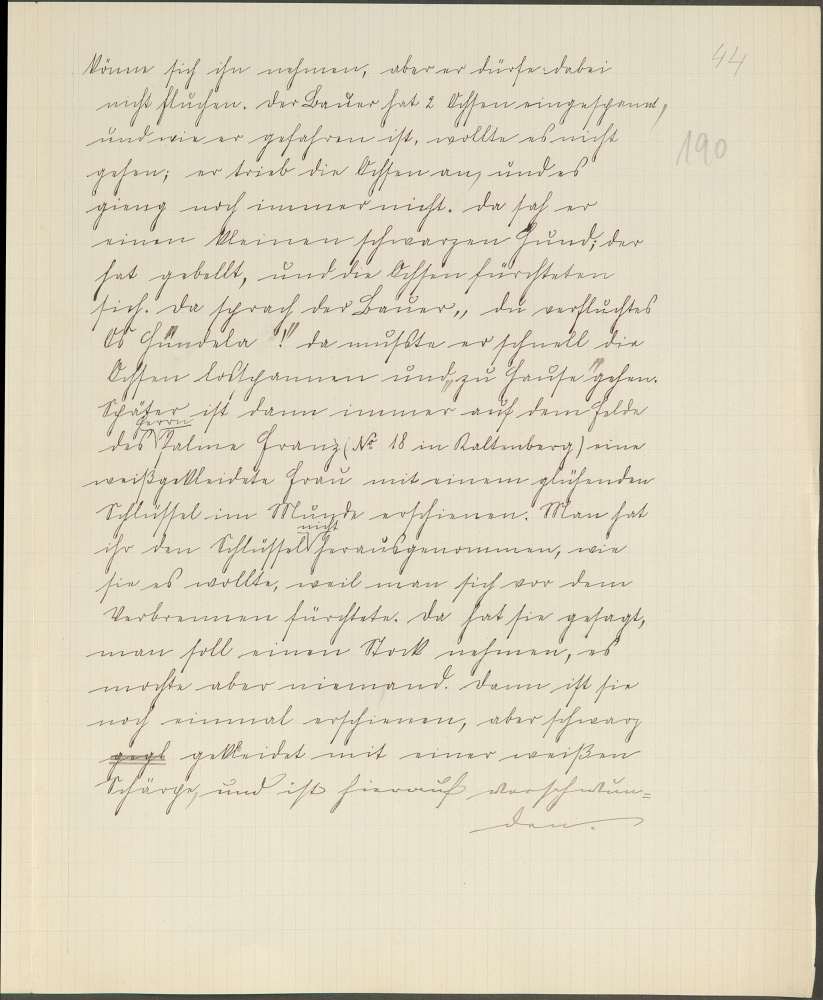 44
könne sich ihn nehmen, aber er dürfe dabei
nicht fluchen. Der Bauer hat 2 Ochsen eingespannt,
190
und wie er gefahren ist, wollte es nicht
gehen; er trieb die Ochsen an, und es
gieng noch immer nicht. Da sah er
einen kleinen schwarzen Hund; der
hat gebellt, und die Ochsen fürchteten
sich. Da sprach der Bauer „ du verfluchtes
Os Hündela "!" da mußste er schnell die
Ochsen losspannen und „zu Hause" gehen.
Später ist dann immer auf dem Felde
Herrn
des Palme Franz (No 18 in Kaltenberg) eine
weißgekleidete Frau mit einem glühenden
Schlüssel im Munde erschienen. Man hat
nicht
ihr den Schlüssel herausgenommen, wie
sie es wollte, weil man sich vor dem
Verbrennen fürchtete. Da hat sie gesagt,
man soll einen Stock nehmen, es
mochte aber niemand. Dann ist sie
noch einmal erschienen, aber schwarz
gegl gekleidet mit einer weißen
Schärpe, und ist hierauf verschwun=
den.